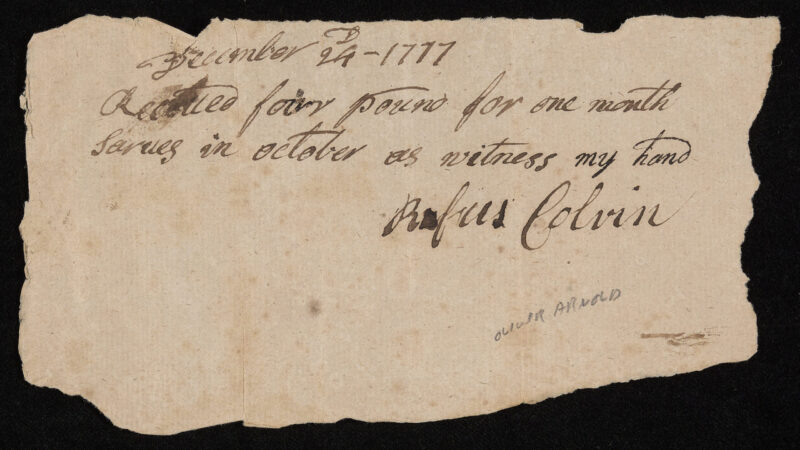 December 24D - 1777
Receiued four pound for one month
Sarues in october as witness my hand
Rufus Colvin
OLIVER ARNOLD